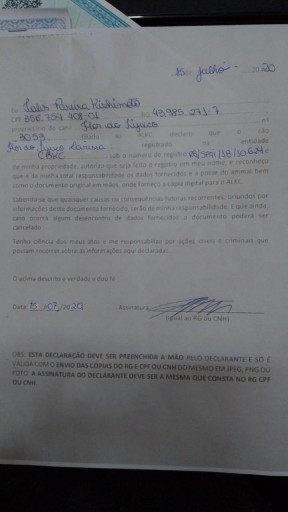 15 julho - 2020
Eu
CPF RG 43.985.271-7
proprietário do canil Flor do Tijuco
3053 filiado ao ALKC, declaro que o cão
registrado na entidade
CBKC sob o número de registro
de minha propriedade, autorizo que seja feito o registro em meu nome, e reconheço
que é de minha total responsabilidade os dados fornecidos e a posse do animal bem
como o documento original em mãos, onde forneço a cópia digital para o ALKC.
Sabendo-se que quaisquer causas ou consequências futuras recorrentes, oriundos por
informações deste documento fornecido, serão de minha responsabilidade. E que ainda,
caso ocorra algum desencontro de dados fornecidos o documento poderá ser
cancelado.
Tenho ciência dos meus atos e me responsabilizo por ações cíveis e criminais que
possam recorrer sobre as informações aqui declaradas.
O acima descrito é verdade e dou fé
Data 15 /07 /2020 Assinatura
(igual ao RG OU CNH)
OBS: ESTA DECLARAÇÃO DEVE SER PREENCHIDA A MÃO PELO DECLARANTE E SÓ É
VÁLIDA COM O ENVIO DAS CÓPIAS DO RG E CPF OU CNH DO MESMO EM JPEG, PNG OU
FOTO. A ASSINATURA DO DECLARANTE DEVE SER A MESMA QUE CONSTA NO RG CPF
OU CNH.